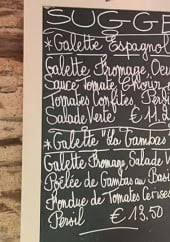 SUGGE
*Galette Espagnol
Galette Fromage, Oeu
Sauce Tomate, Chorizo
Tomates Confites, Persil
Salade Verte € 11,2
*Galette "La Gambas"
Galette Fromage, Salade V
Poêlée de Gambas au Basi
Fondue de Tomates Cerises
Persil € 13,50